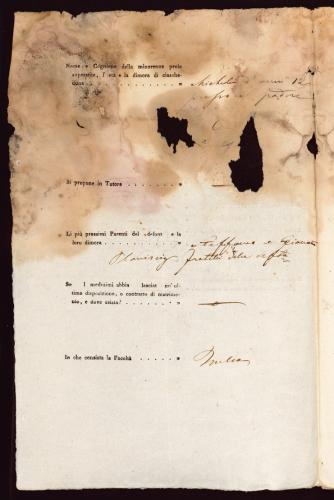 Nome e Cognome della minorenne prole
superstite, l'età e la dimora di ciasche-
duno . . . . . . . . . . . „ Michele anni 12
presso padre
Si propone in Tutore . . . . . . „ —
Li più prossimi Parenti del defunt e la
loro dimora . . . . . . . . „ Steffano e Giovan
fratelli del
Se I medesimi abbia lasciat un'ul-
tima disposizione, o contratto di matrimo-
nio, e dove esista? . . . . . . . . „ —
In che consista la Facoltà . . . . . „ Nulla